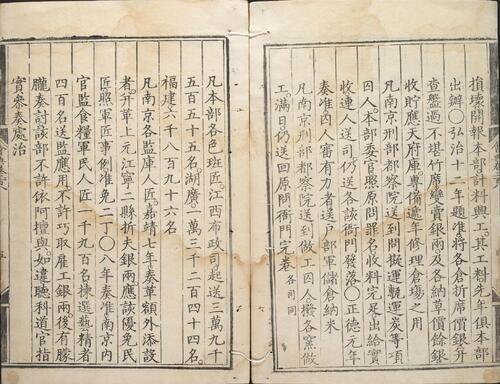 損壞開報本部計料興工其工料先年俱本部
出辦○弘治十二年題准將各倉折席價銀并
查盤過不堪竹席變賣銀兩及各納草價餘銀
收貯應天府庫專備遞年修理倉場之用
凡南京刑部都察院送到問擬運甎運炭等項
囚人本部委官照原問罪名收料完足出給實
收連人送司仍送各該衙門發落○正德元年
奏准囚人審有力者送戶部軍儲倉納米
凡南京刑部都察院送到做工囚人撥各窯做
工滿日仍送回原問衙門完卷各司同
凡本部各色班匠江西布政司起送三萬九千
五百五十五名湖廣一萬三千二百四十四名
福建六千八百九十六名
凡南京各監庫人匠嘉靖七年奏革額外添設
者并革上元江寧二縣折夫銀兩應該優免民
匠照軍匠事例准免二丁○八年奏准南京內
官監食糧軍民人匠一千九百名揀選藝精者
四百名送監應用不許巧取雇工銀兩後有朦
朧奏討該部不許依阿擅與如違聽科道官指
實參奏處治